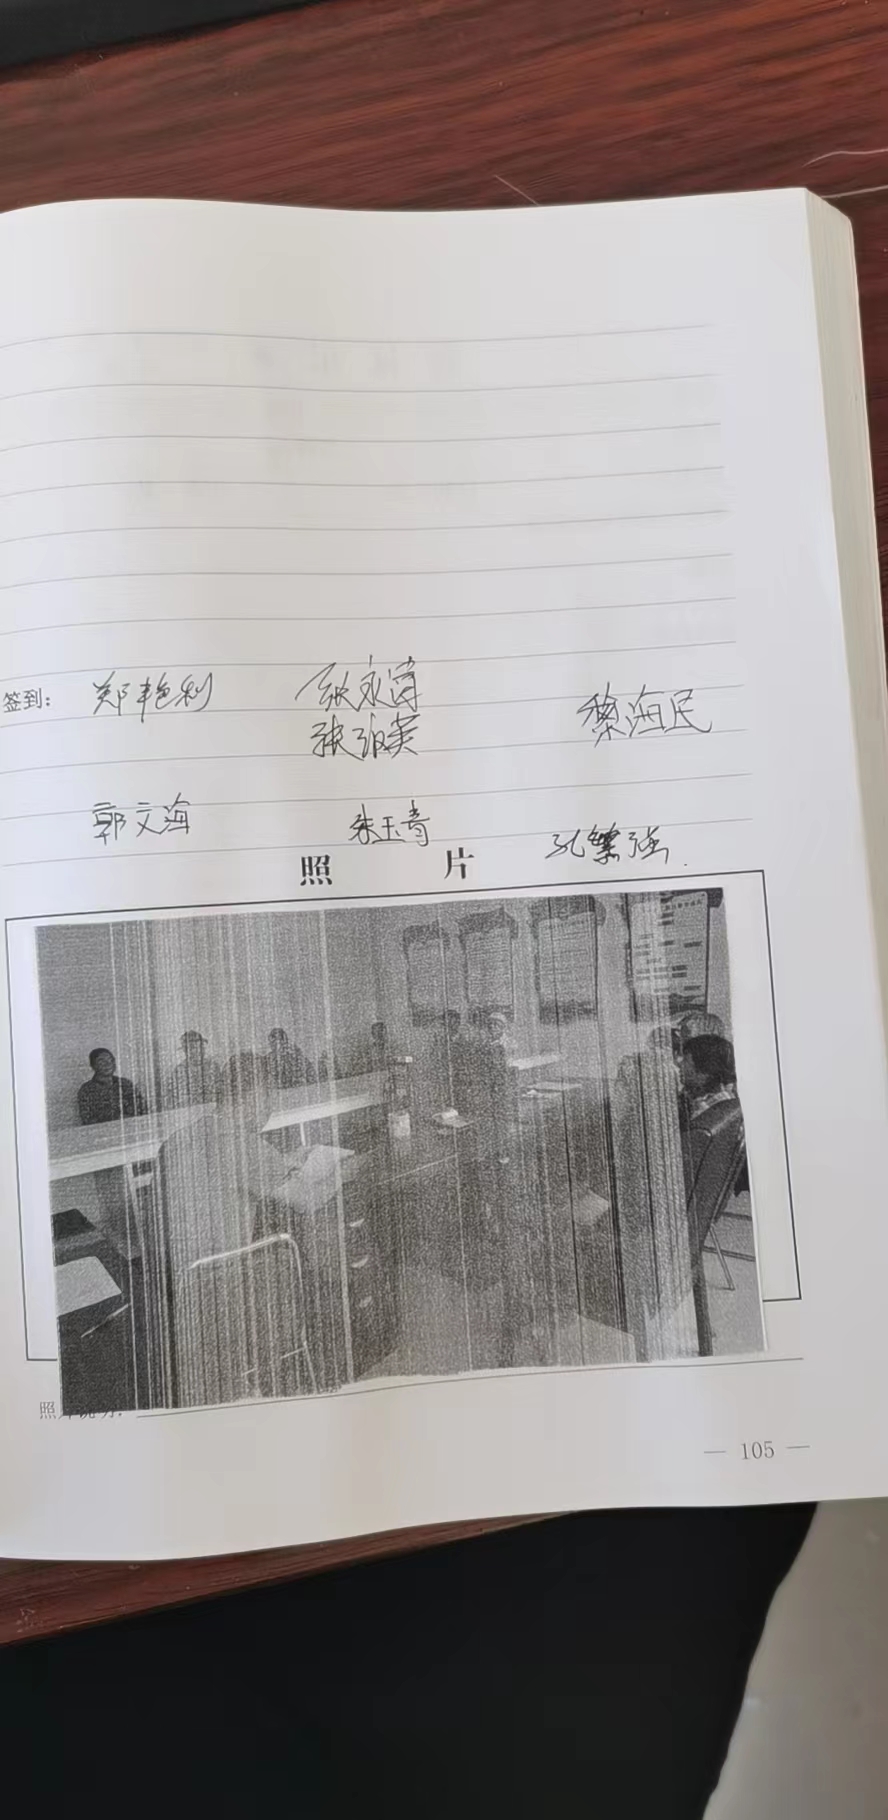 签到: 郑艳利 张永涛 黎海民
张淑英
郭文海 朱玉青 孔繁强
照 片
— 105 —